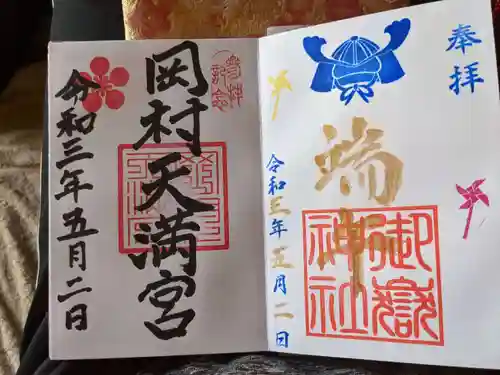 奉拝
端午
御嶽神社
令和三年五月二日
岡村天満宮
令和三年五月二日